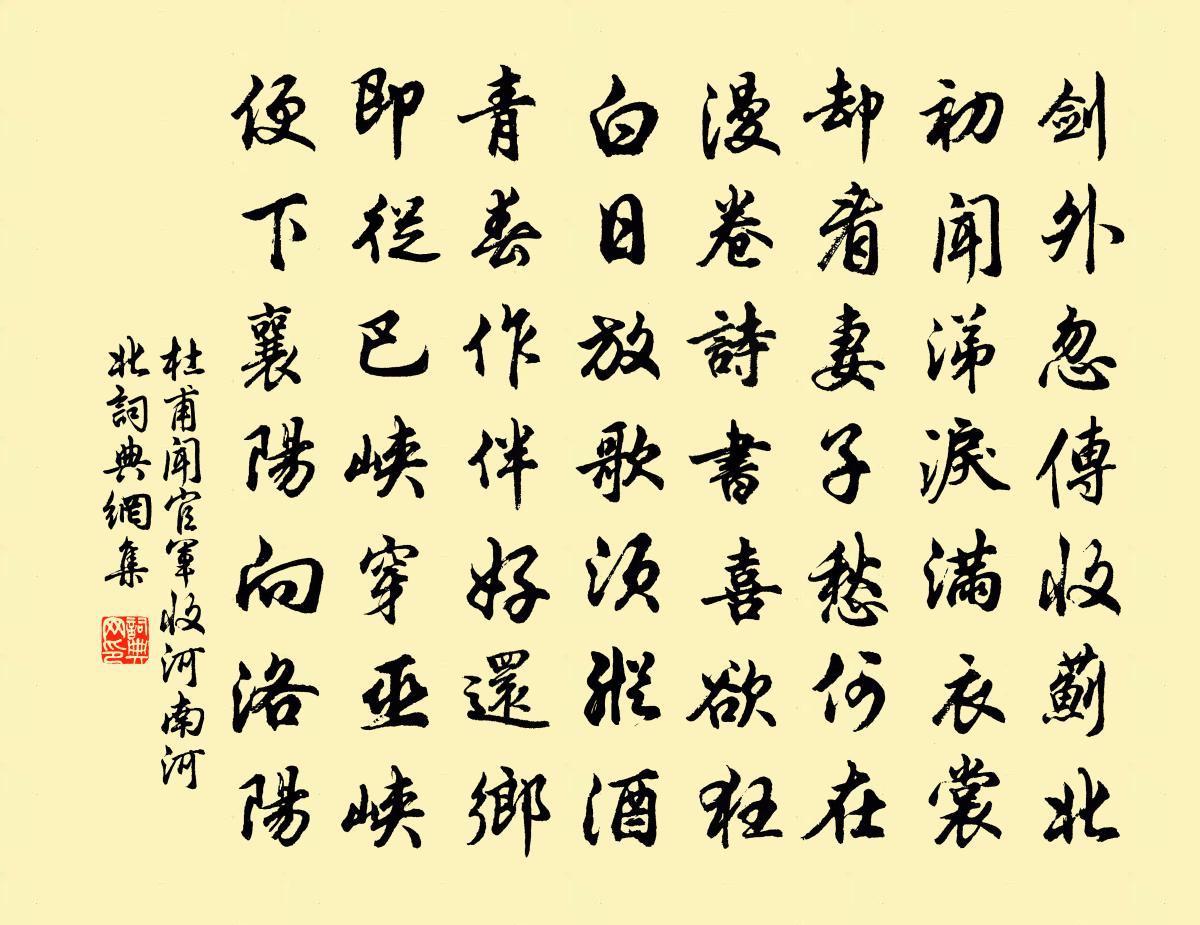 劍外忽傳收薊北
初聞涕淚滿衣裳
却看妻子愁何在
漫卷詩書喜欲狂
白日放歌須縱酒
青春作伴好還鄉
即從巴峽穿巫峽
便下襄陽向洛陽
杜甫聞官軍收河南河
北詞典網集
詞典
网印